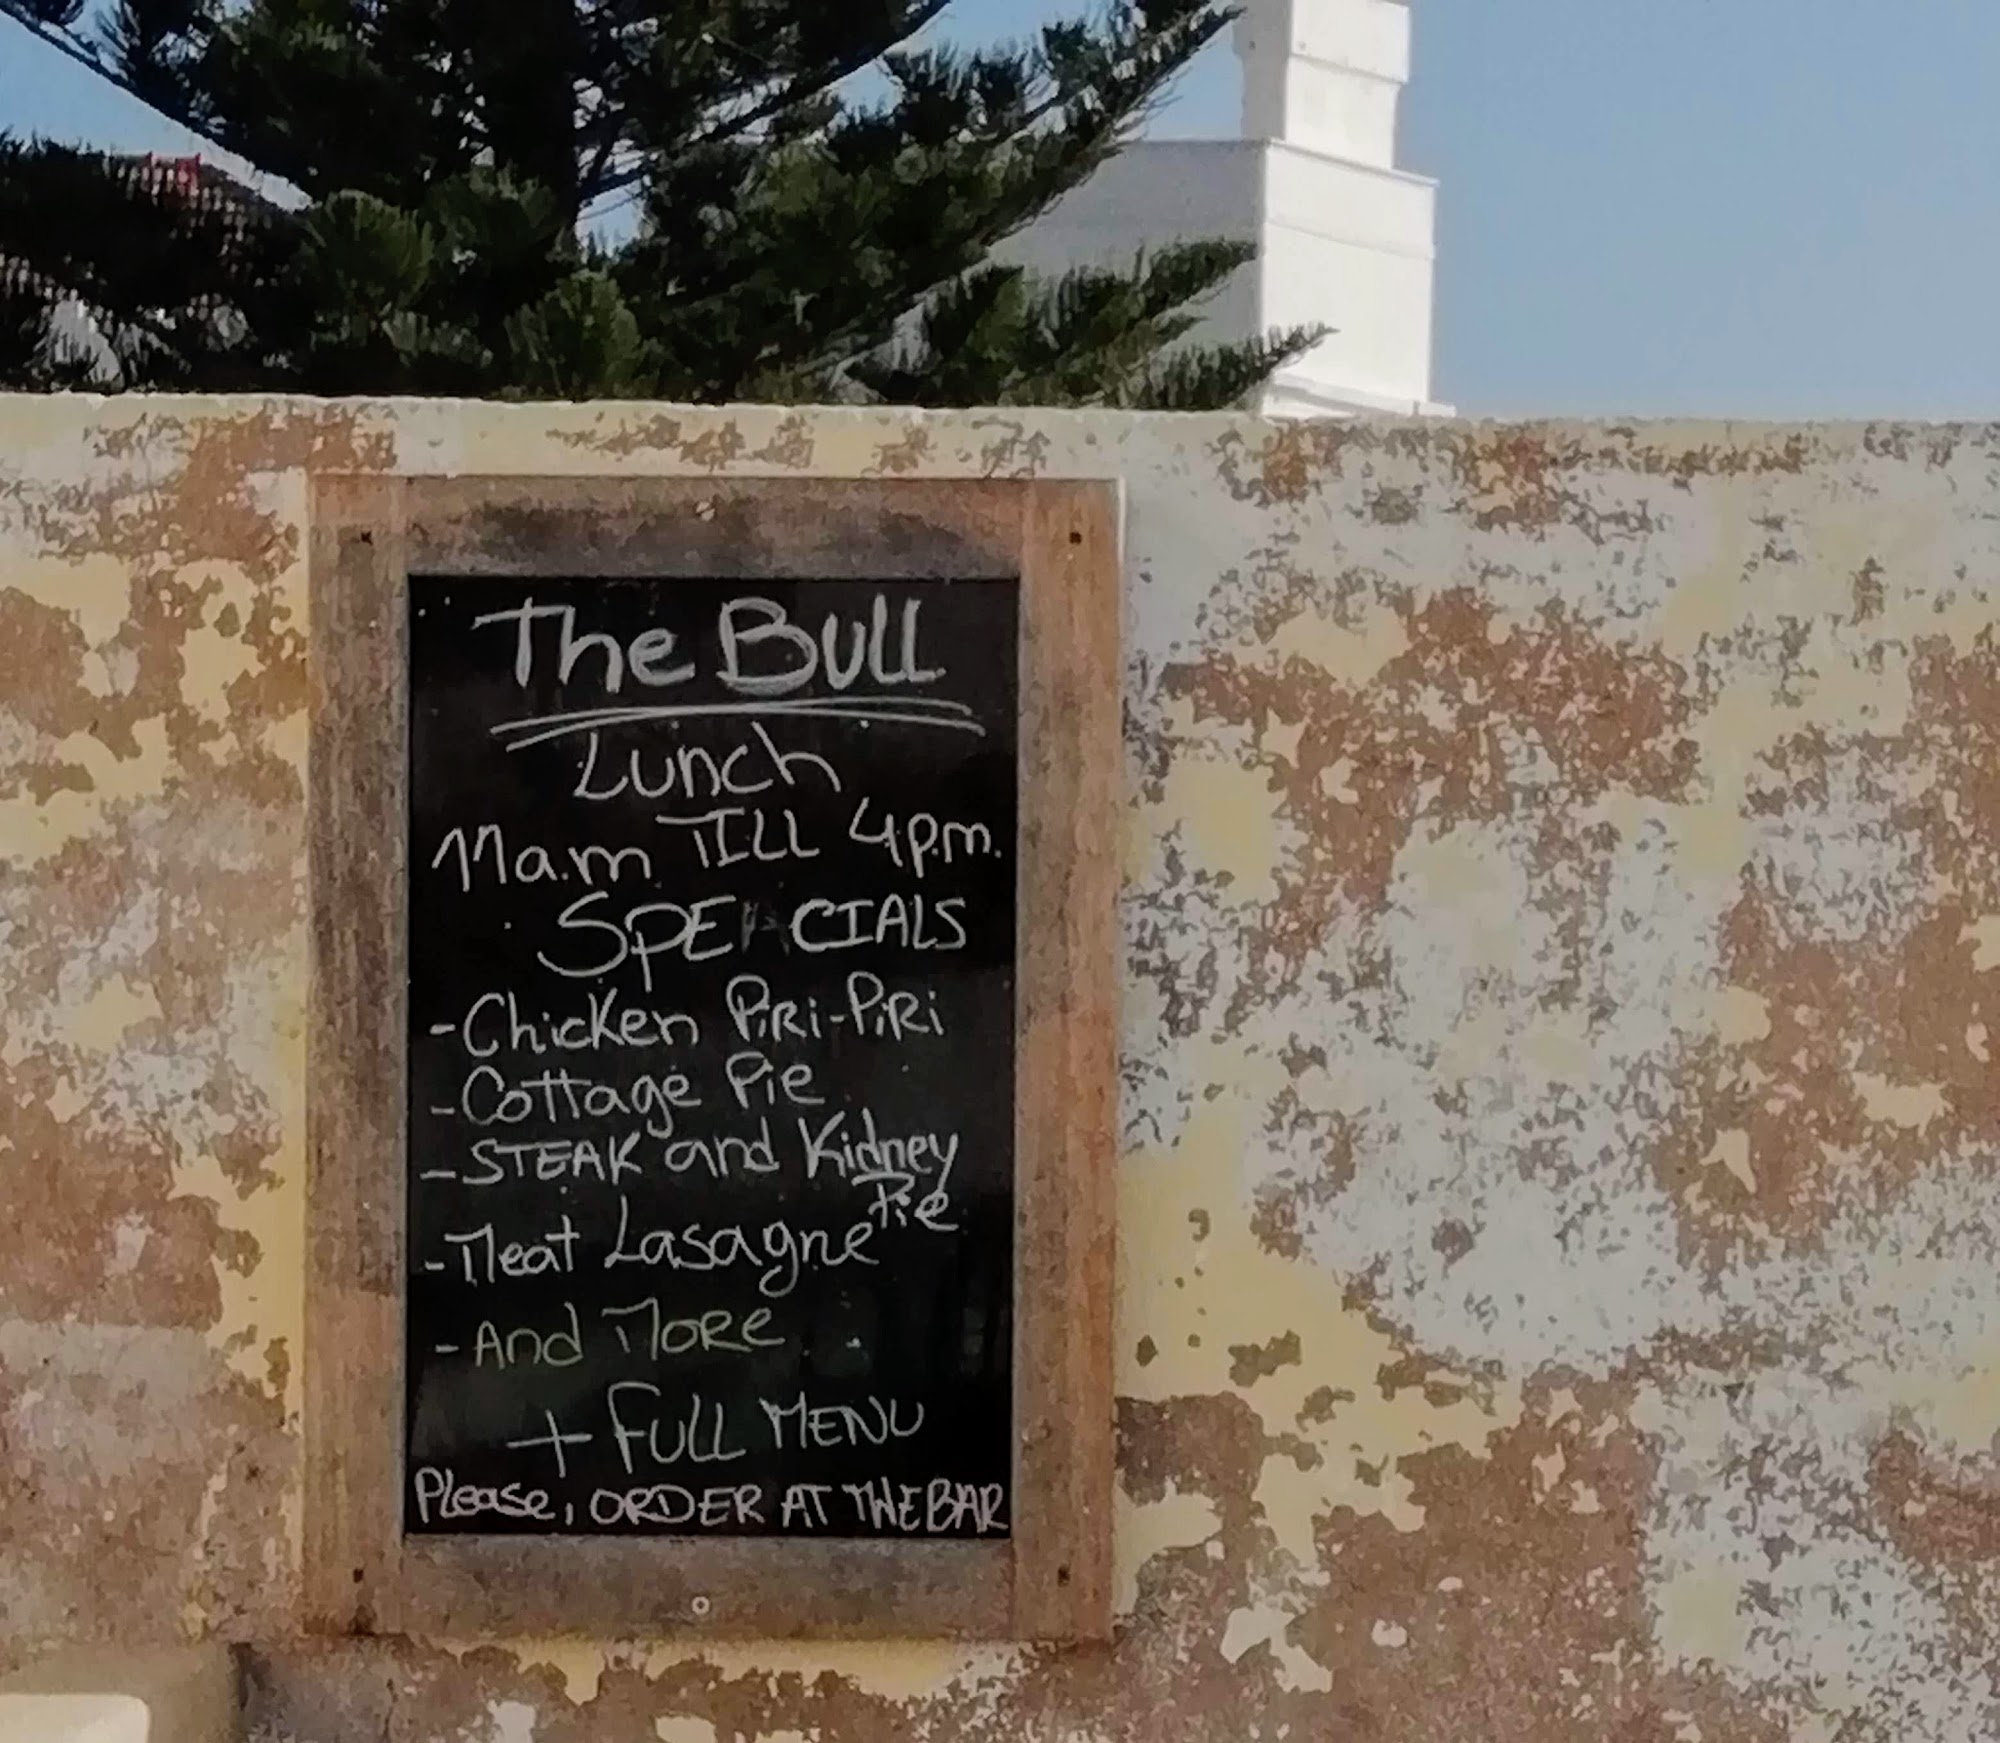 The Bull
Lunch
11a.m TILL 4p.m.
SpECIALS
-Chicken PiRi-PiRi
-Cottage Pie
-STEAK and Kidney
Pie
-Meat Lasagne
-And MoRe
+ FULL MENU
Please, ORDER AT THE BAR